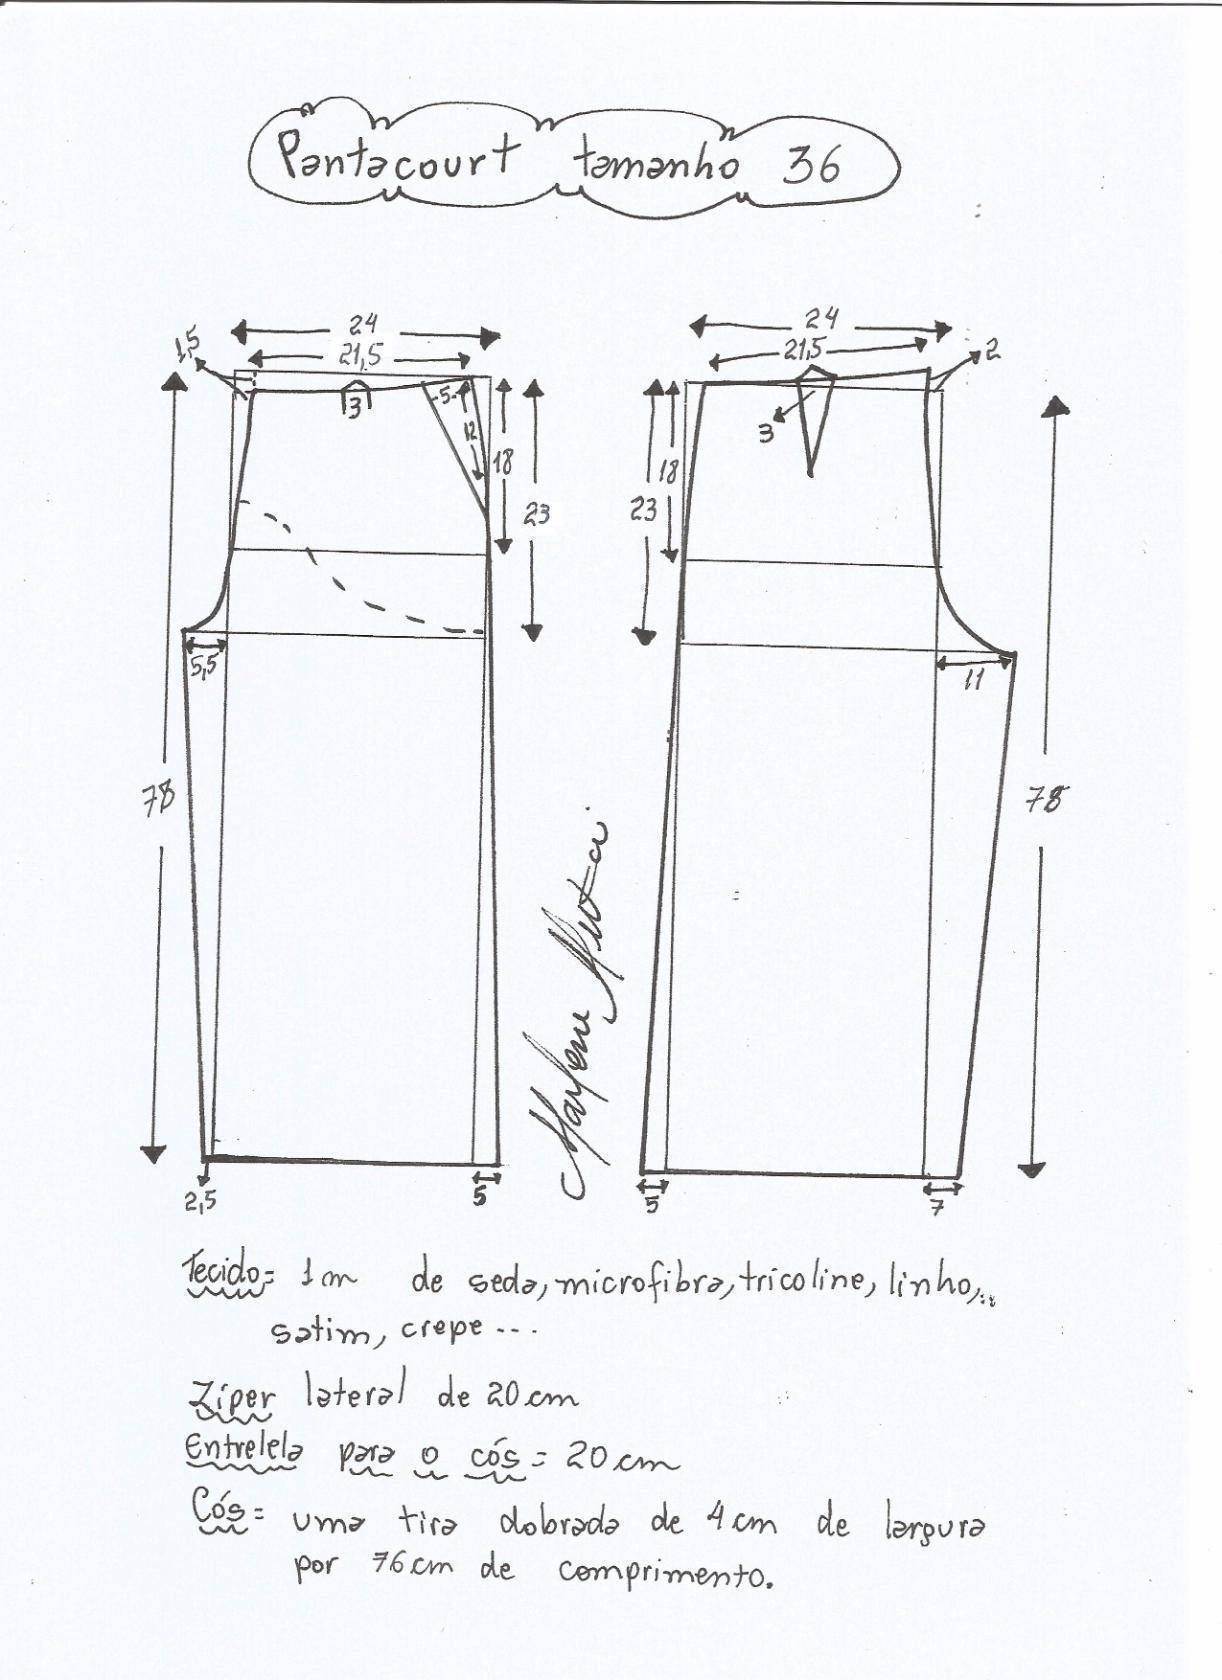 Pantacourt tamanho 36
24
21,5
1,5
3
5
12
18
23
5,5
78
2,5
5
24
21,5
2
3
18
23
11
78
5
7
Marlene Mukai
Tecido= 1m de seda, microfibra, tricoline, linho,..
satim, crepe...
Zíper lateral de 20cm
Entrelela para o cós= 20cm
Cós= uma tira dobrada de 4cm de largura
por 76cm de comprimento.